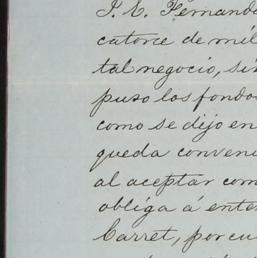 P. E. Fernand
catorce de mil
tal negocio, sin
puso los fondo
como se dijo en
queda conveni
al aceptar com
obliga á ente
Carret, por cu